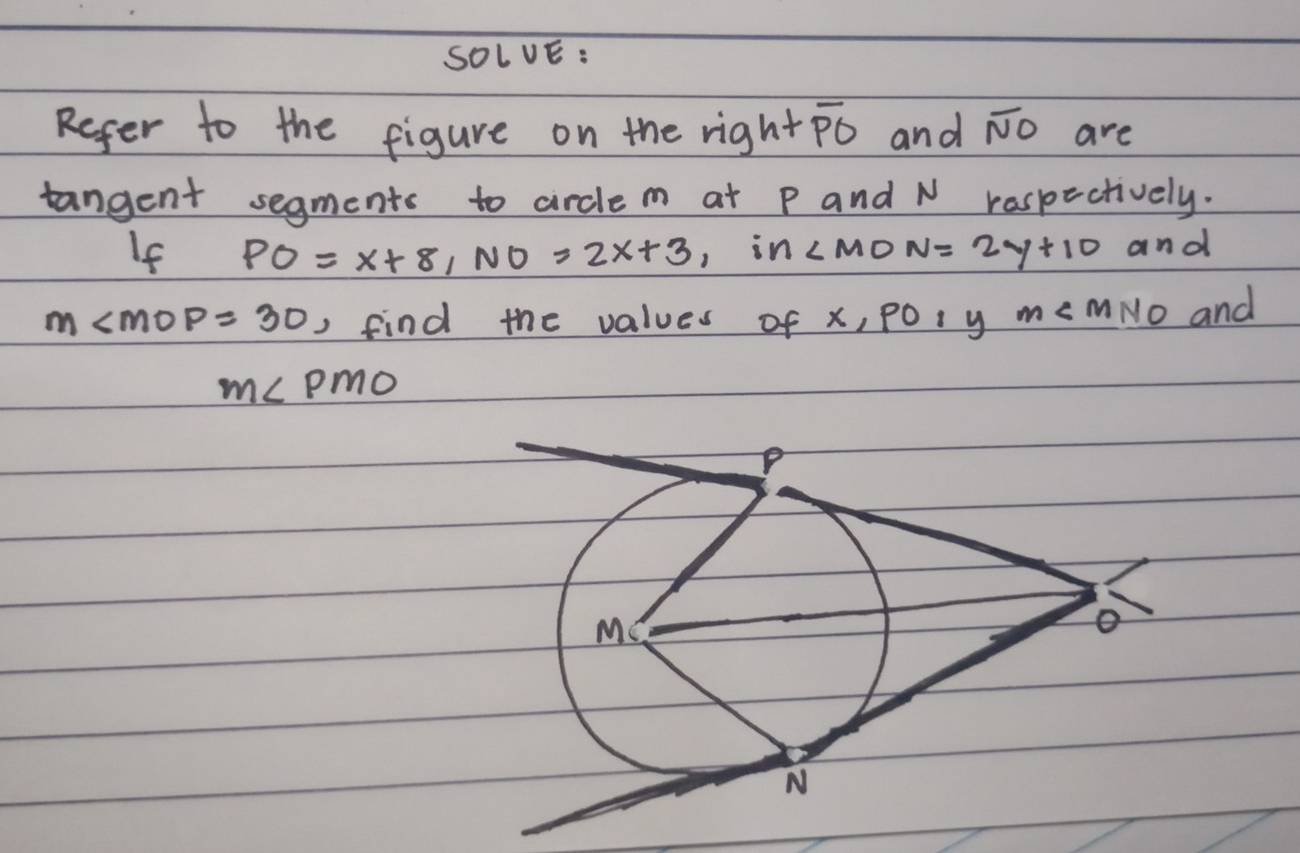 SOLVE:
Refer to the figure on the right P̅O̅ and N̅O̅ are
tangent segments to circle m at P and N raspectively.
If PO = x+8, NO = 2x+3, in<MON= 2y+10 and
m<MOP= 30, find the values of x, PO, y m<MNO and
m< PMO
P
M
O
N